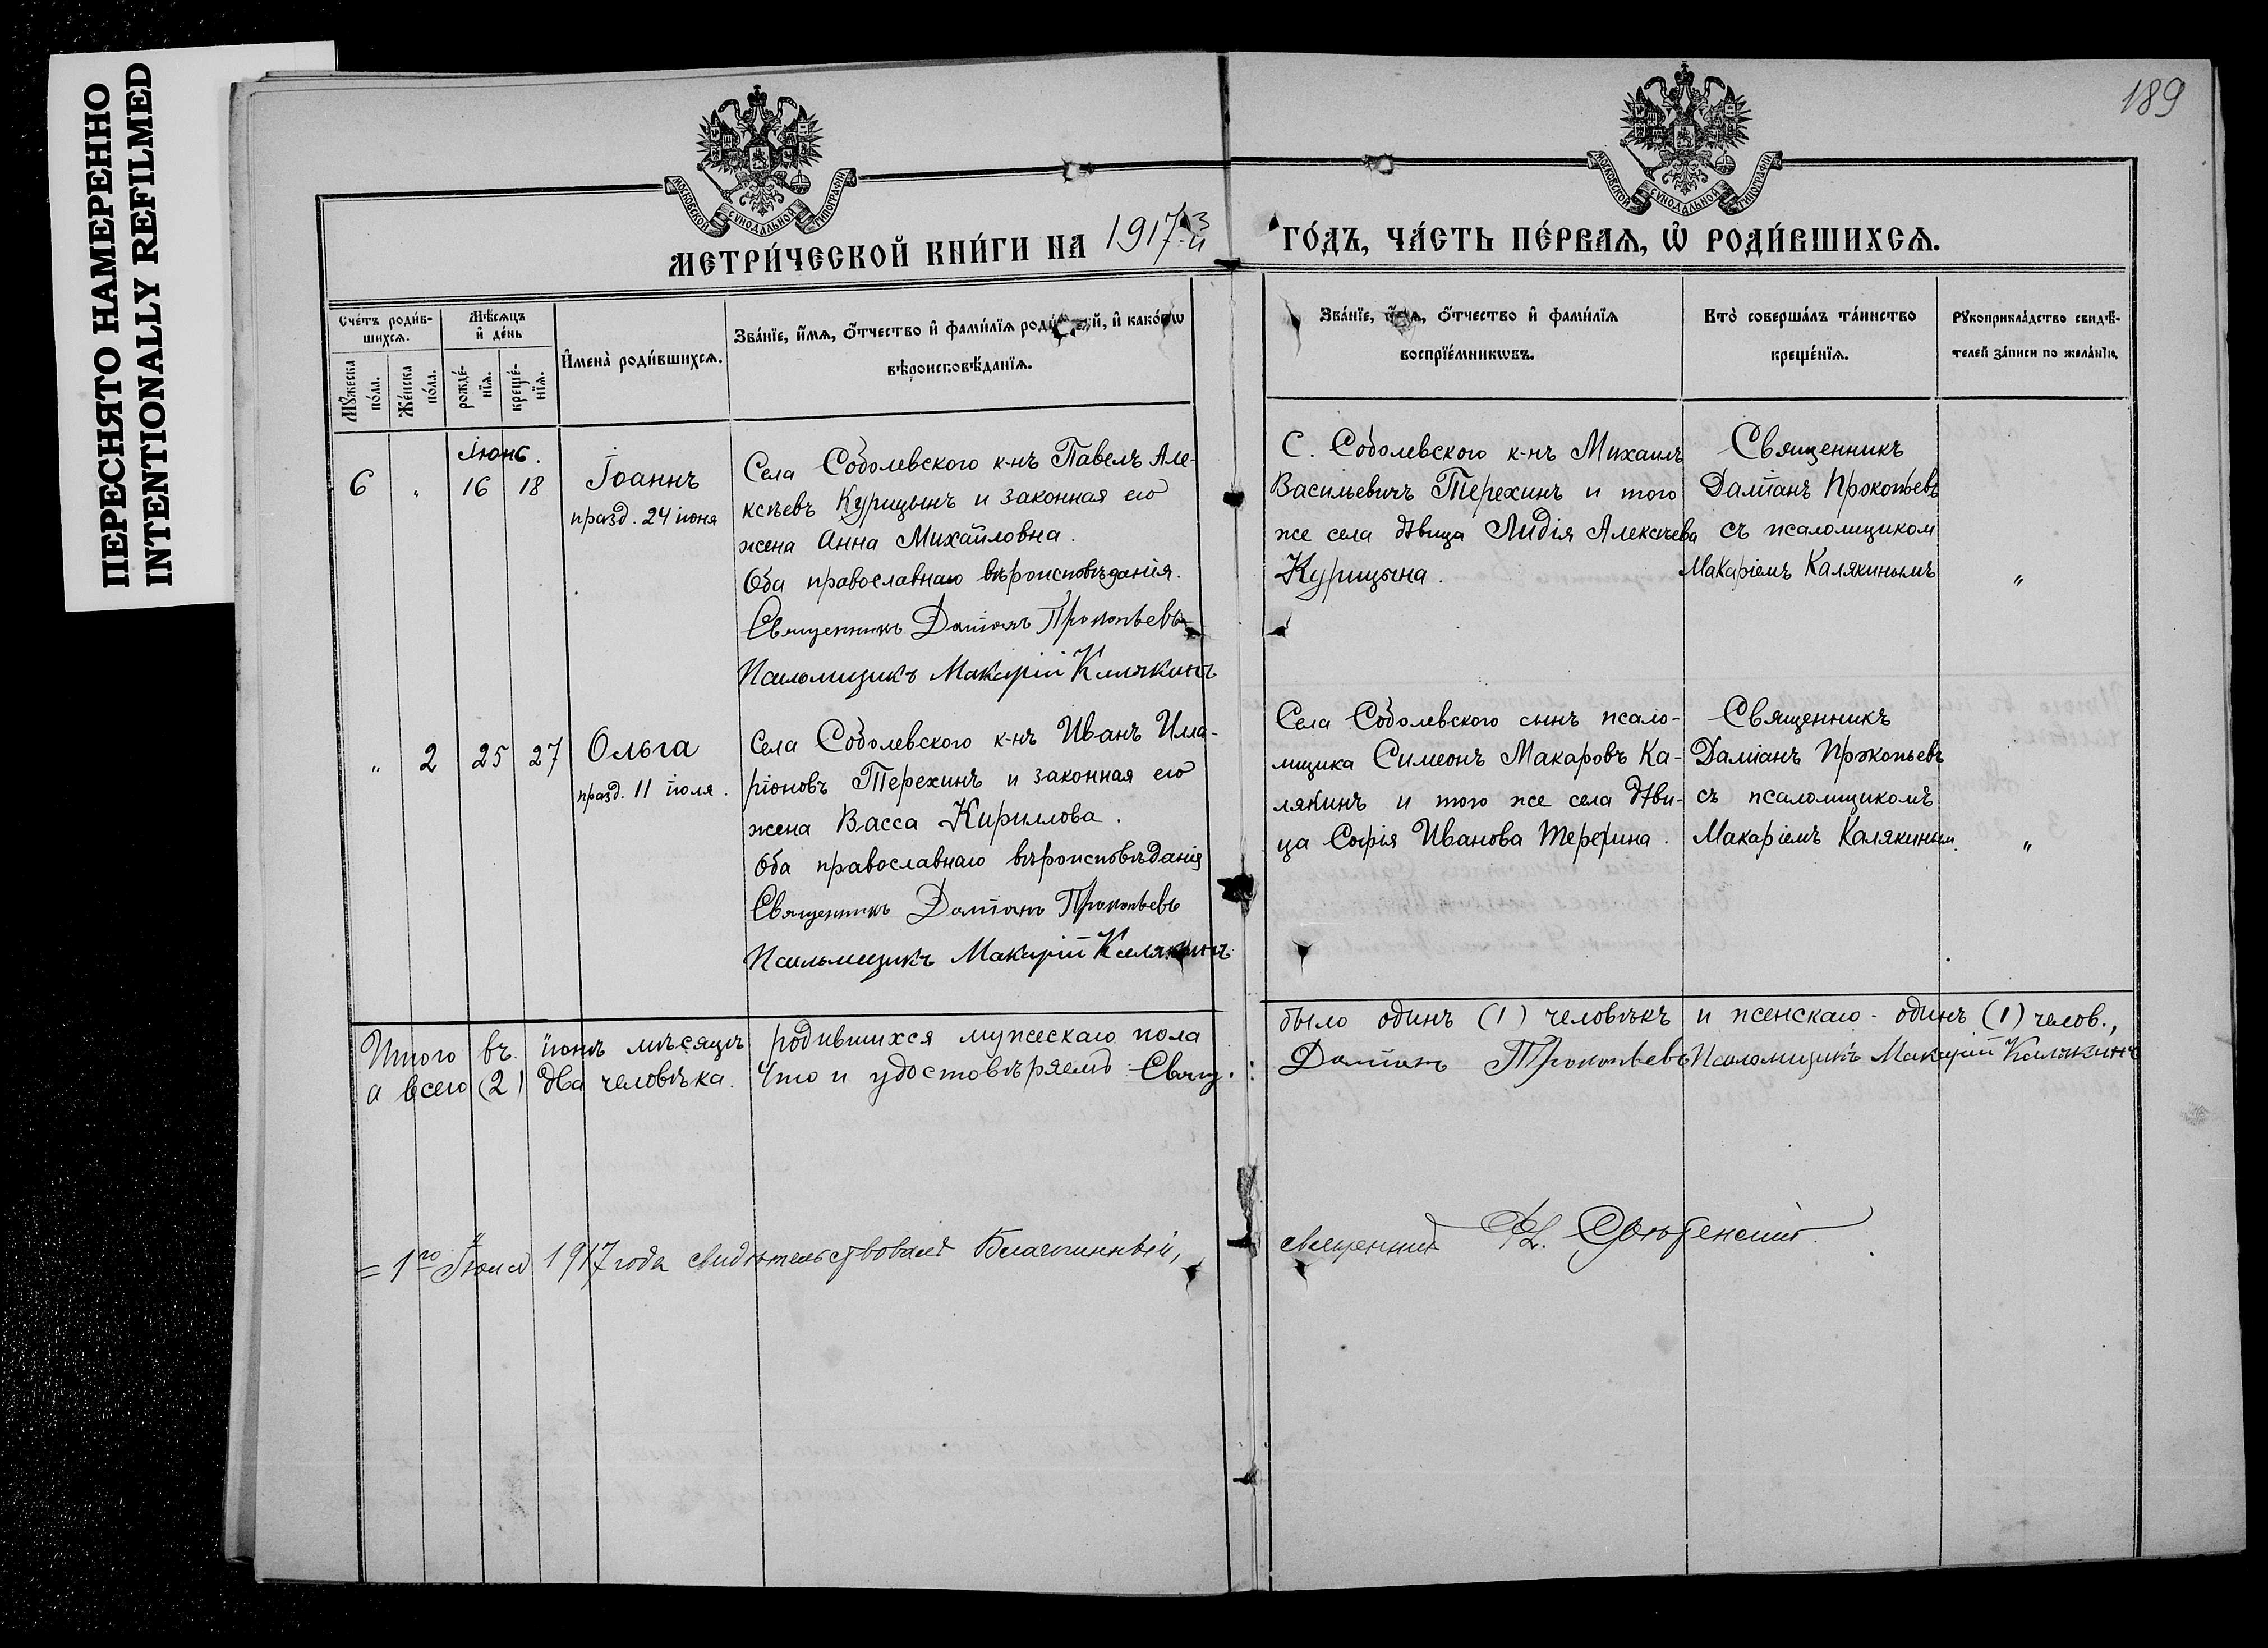 ПЕРЕСНЯТО НАМЕРЕННО
INTENTIONALLY REFILMED
189
МОСКОВСКОЙ СѴНОДАЛЬНОЙ ТИПОГРАФІИ
МОСКОВСКОЙ СѴНОДАЛЬНОЙ ТИПОГРАФІИ
МЕТРИ́ЧЕСКОЙ КНИ́ГИ НА 1917-й
ГО́ДЪ, ЧА́СТЬ ПЕ́РВАѦ, Ѽ РОДИ́ВШИХСѦ.
Сче́тъ роди́в-
шихсѧ.
Мѣ́сѧцъ
и҆ де́нь
Мꙋ́жеска
по́ла.
Же́нска
по́ла.
рожде́-
нїѧ.
креще́-
нїѧ.
И҆мена̀ роди́вшихсѧ.
Зва́нїе, и҆́мѧ, ѻ҆́тчество и҆ фами́лїѧ роди́телей, и҆ како́гѡ
вѣроисповѣ́данїѧ.
Зва́нїе, и҆́мѧ, ѻ҆́тчество и҆ фами́лїѧ
воспрїе́мникѡвъ.
Кто̀ соверша́лъ та́инство
креще́нїѧ.
Рꙋкоприкла́дство свидѣ́-
телей за́писи по жела́нїю.
Іюнь.
6 " 16 18 Іоаннъ
празд. 24 іюня
Села Соболевского к-нъ Павелъ Але-
ксѣевъ Курицынъ и законная его
жена Анна Михайловна.
Оба православнаго вѣроисповѣданія.
Священникъ Даміанъ Прокопьевъ
Псаломщикъ Макарій Калякинъ
С. Соболевского к-нъ Михаилъ
Васильевичъ Терехинъ и того
же села дѣвица Лидія Алексѣева
Курицына.
Священникъ
Даміанъ Прокопьевъ
съ псаломщиком
Макаріемъ Калякинымъ
"
" 2 25 27 Ольга
празд. 11 іюля.
Села Соболевского к-нъ Иванъ Ила-
ріоновъ Терехинъ и законная его
жена Васса Кириллова.
Оба православнаго вѣроисповѣданія
Священникъ Даміанъ Прокопьевъ
Псаломщикъ Макарій Калякинъ
Села Соболевского сынъ псало-
мщика Симеонъ Макаровъ Ка-
лякинъ и того же села дѣви-
ца Софія Иванова Терехина.
Священникъ
Даміанъ Прокопьевъ
съ псаломщикомъ
Макаріемъ Калякиным.
"
Итого въ іюнѣ мѣсяцѣ родившихся мужескаго пола было одинъ (1) человѣкъ и женскаго - одинъ (1) челов.,
а всего (2) два человѣка. Что и удостовѣряемъ Свящ. Даміанъ Прокопьевъ Псаломщикъ Макарій Калякинъ
= 1го Іюля 1917 года свидѣтельствовалъ Благочинный, священникъ